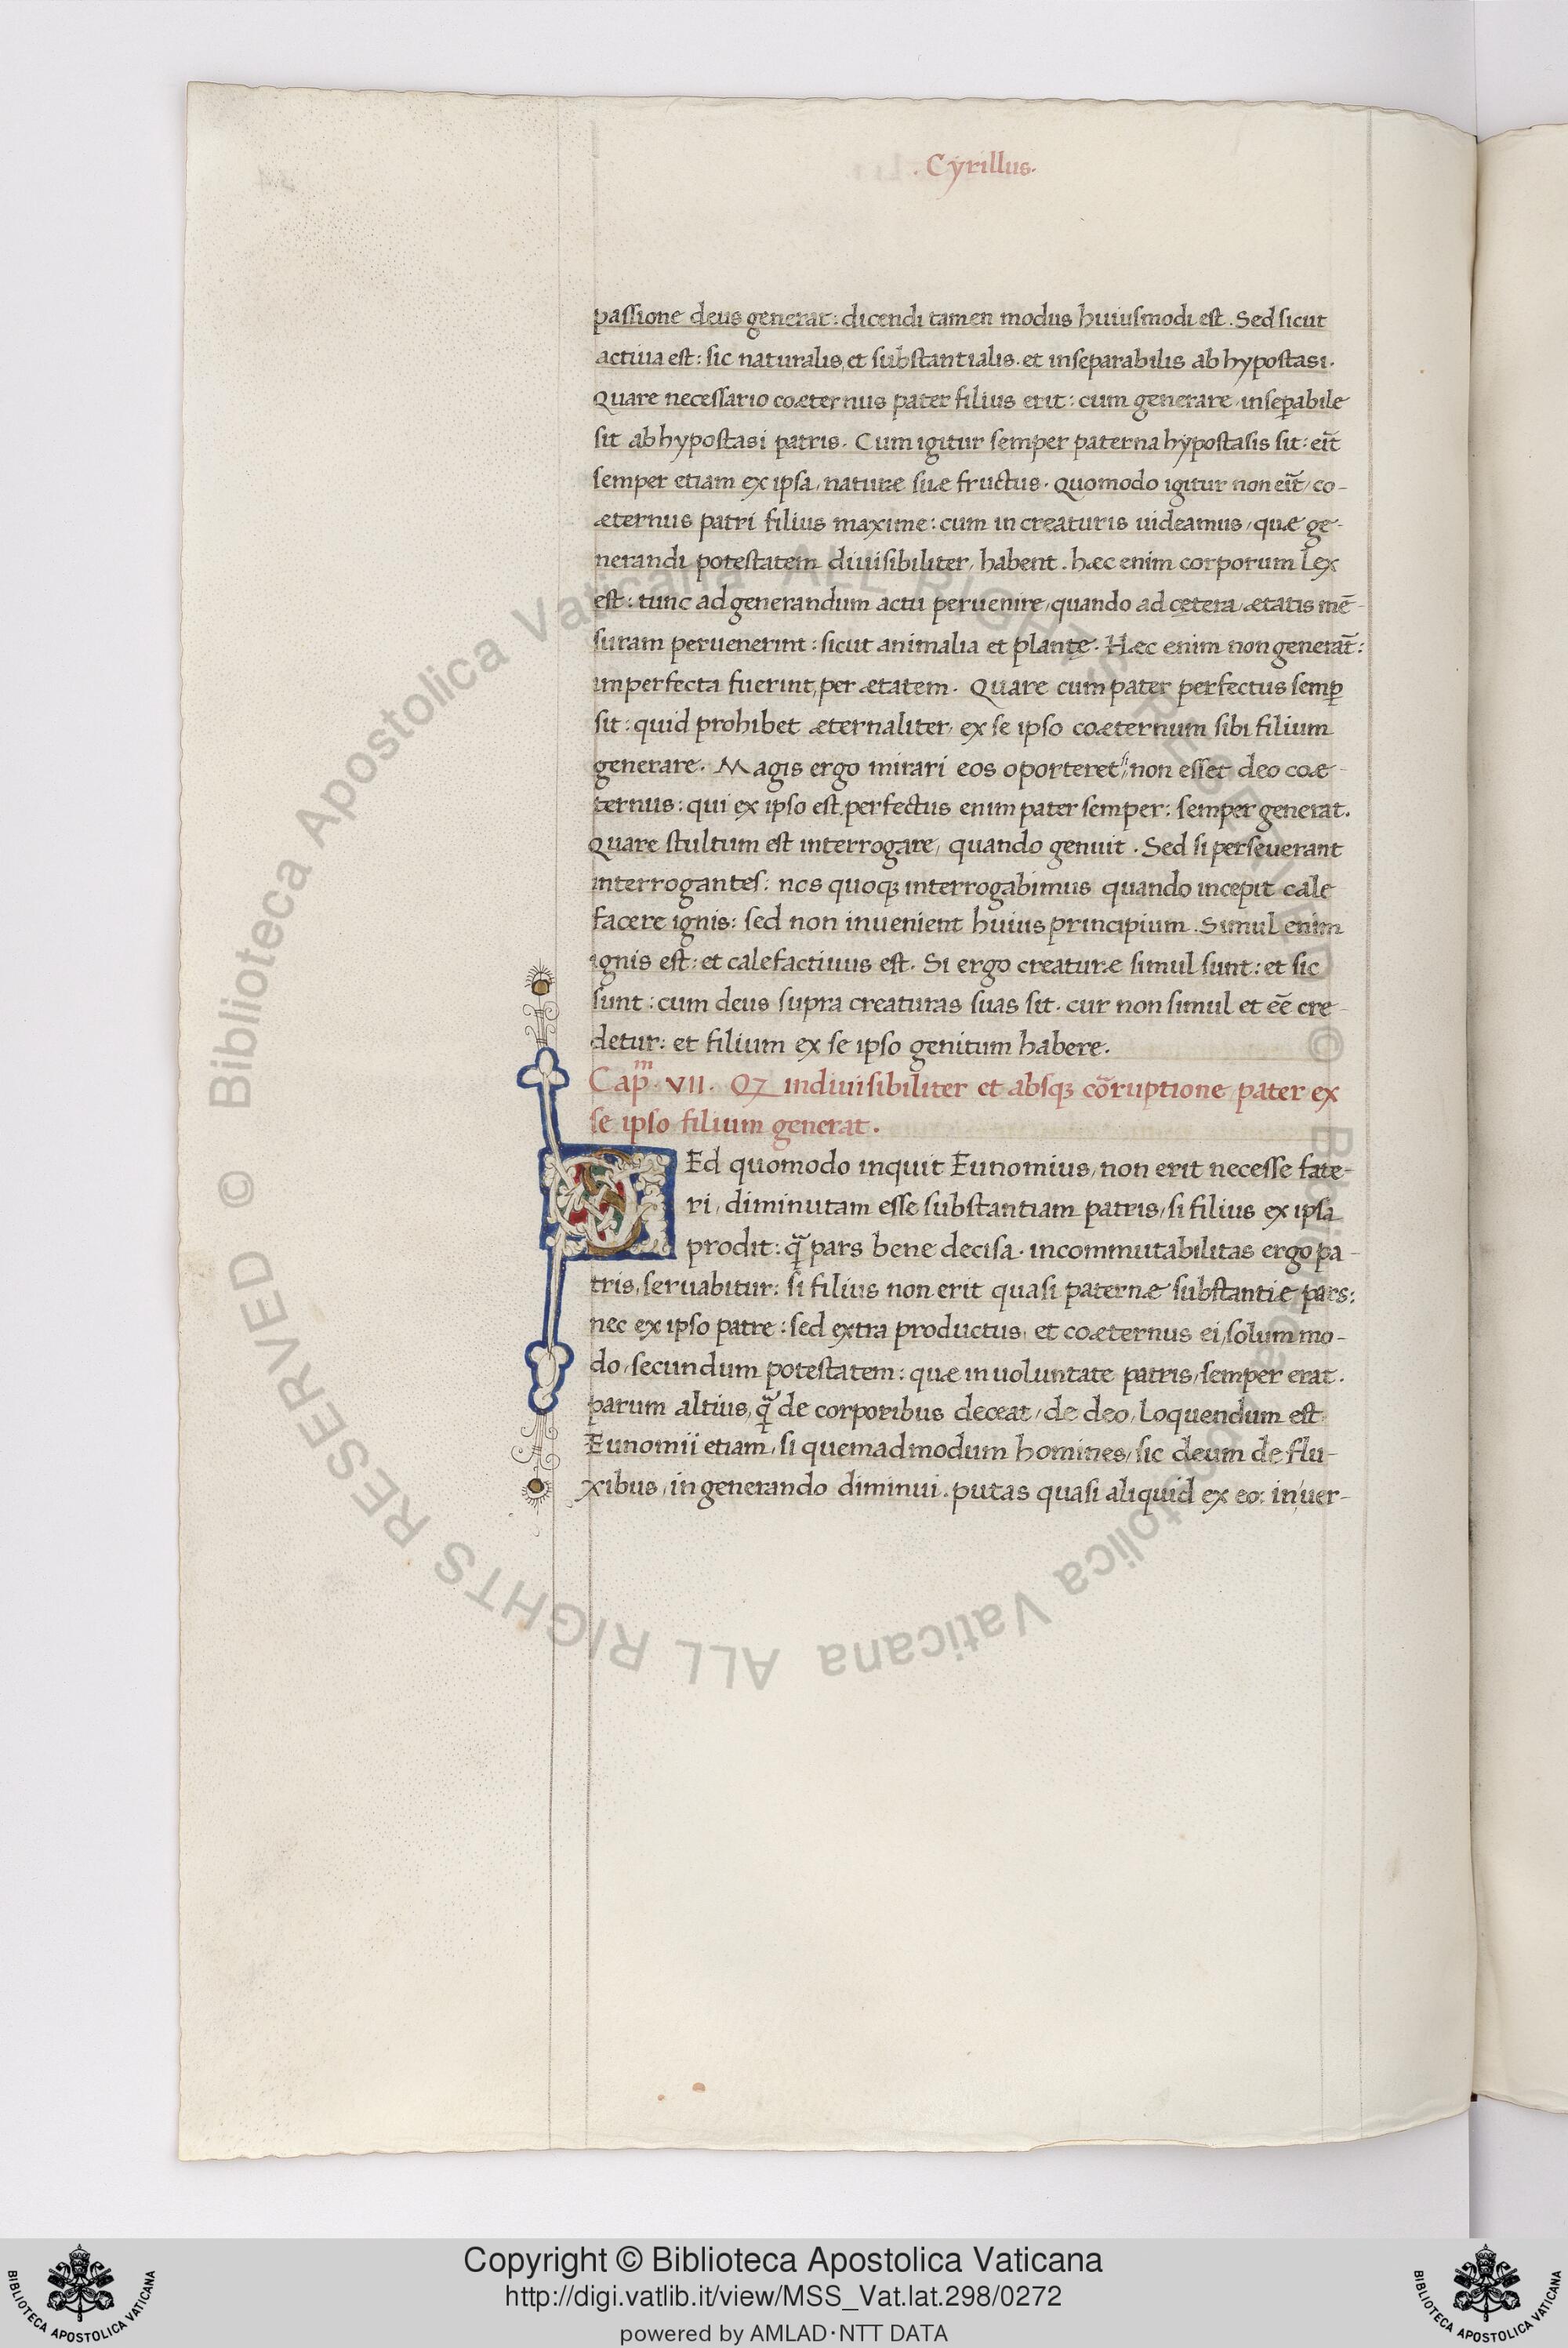 . Cyrillus.
passione deus generat: dicendi tamen modus huiusmodi est. Sed sicut
actiua est: sic naturalis, et substantialis. et inseparabilis ab hypostasi.
Quare necessario coæternus pater filius erit: cum generare, insep̱abile
sit ab hypostasi patris. Cum igitur semper paterna hypostasis sit: eit̄
semper etiam ex ipsa, naturæ suæ fructus. Quomodo igitur non eīt, co-
æternus patri filius maxime: cum in creaturis uideamus, quæ ge-
nerandi potestatem diuisibiliter, habent. hæc enim corporum lex
est: tunc ad generandum actu peruenire, quando ad cętera, ætatis mē-
suram peruenerint: sicut animalia et plantę. Hæc enim non generat̄:
imperfecta fuerint, per ætatem. Quare cum pater perfectus semp̱
sit: quid prohibet æternaliter, ex se ipso coæternum sibi filium
generare. Magis ergo mirari eos oporteret, si non esset deo coæ-
ternus: qui ex ipso est. perfectus enim pater semper: semper generat.
Quare stultum est interrogare, quando genuit. Sed si perseuerant
interrogantes: nos quoqꝫ interrogabimus quando incepit cale
facere ignis: sed non inuenient huius principium. Simul enim
ignis est: et calefactiuus est. Si ergo creaturæ simul sunt: et sic
sunt: cum deus supra creaturas suas sit. cur non simul et eē cre-
detur: et filium ex se ipso genitum habere.
Cap̱ᵐ. VII. Qꝫ indiuisibiliter et absqꝫ cōruptione pater ex
se ipso filium generat.
SEd quomodo inquit Eunomius, non erit necesse fate-
ri, diminutam esse substantiam patris, si filius ex ipsa
prodit: q̱̃ pars bene decisa. incommutabilitas ergo pa-
tris, seruabitur: si filius non erit quasi paternæ substantiæ pars:
nec ex ipso patre: sed extra productus, et coæternus ei, solum mo-
do, secundum potestatem: quæ in uoluntate patris, semper erat.
parum altius, q̱̃ de corporibus deceat, de deo, loquendum est
Eunomii etiam, si quemadmodum homines, sic deum de flu-
xibus, in generando diminui. putas quasi aliquid ex eo: in uer-
© Biblioteca Apostolica Vaticana ALL RIGHTS RESERVED © Biblioteca Apostolica Vaticana ALL RIGHTS RESERVED
Copyright © Biblioteca Apostolica Vaticana
http://digi.vatlib.it/view/MSS_Vat.lat.298/0272
powered by AMLAD·NTT DATA
BIBLIOTECA APOSTOLICA VATICANA
BIBLIOTECA APOSTOLICA VATICANA